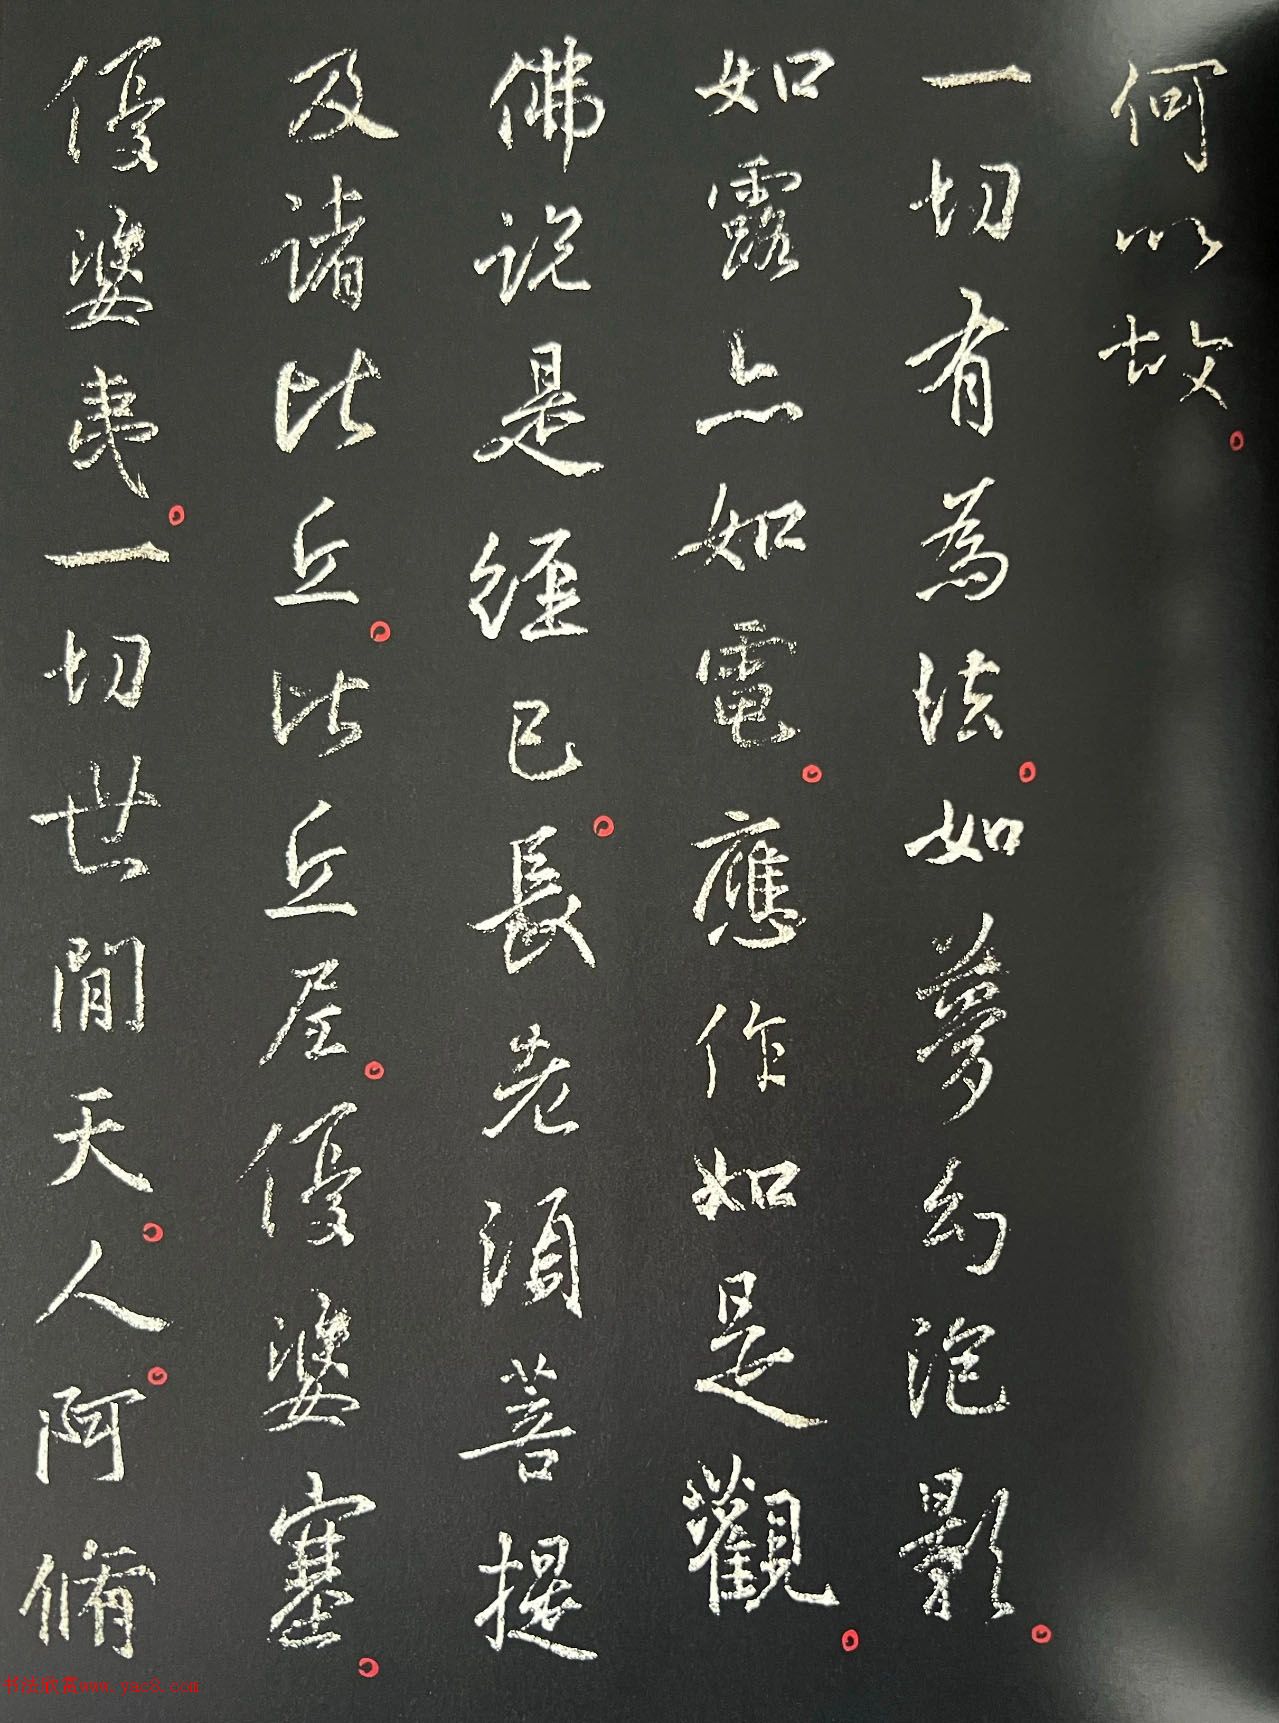 何以故。
一切有為法。如夢幻泡影。
如露亦如電。應作如是觀。
佛說是經已。長老須菩提
及諸比丘。比丘尼。優婆塞。
優婆夷。一切世間天。人。阿脩
书法欣赏www.yac8.com